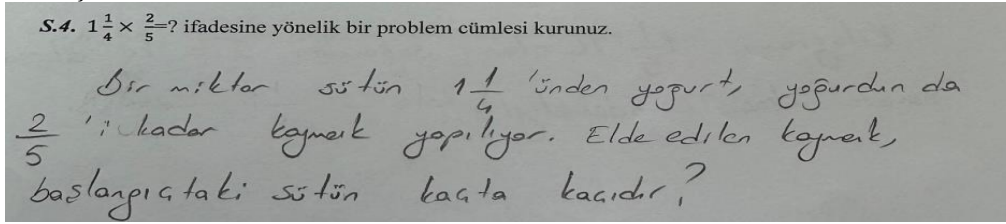 S.4. 1 1/4 × 2/5=? ifadesine yönelik bir problem cümlesi kurunuz.
Bir miktar sütün 1 1/4 'ünden yoğurt, yoğurdun da
2/5 'i kadar kaymak yapılıyor. Elde edilen kaymak,
başlangıçtaki sütün kaçta kaçıdır?